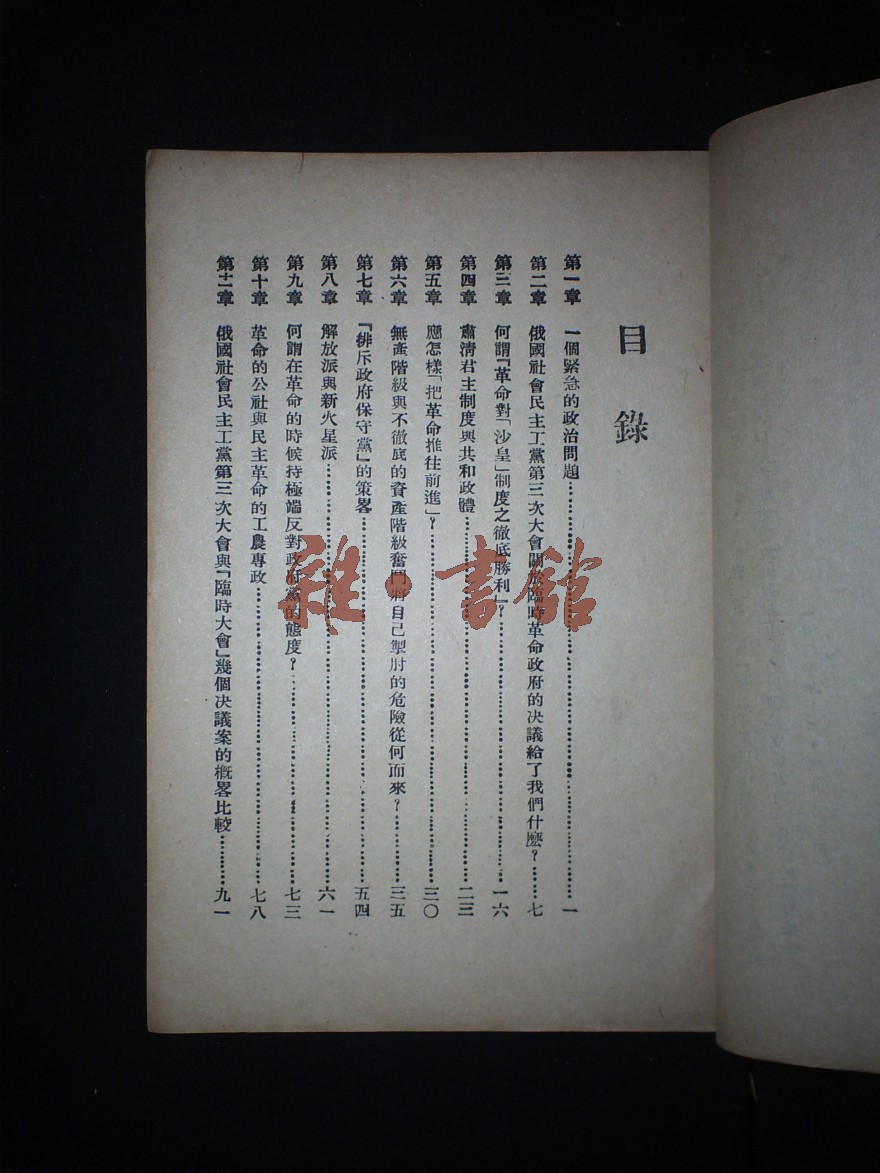 目錄
第一章 一個緊急的政治問題……一
第二章 俄國社會民主工黨第三次大會關於臨時革命政府的決議給了我們什麼？……七
第三章 何謂「革命對「沙皇」制度之徹底勝利」？……一六
第四章 肅清君主制度與共和政體……二三
第五章 應怎樣「把革命推往前進」？……三〇
第六章 無產階級與不徹底的資產階級奮鬥將自己掣肘的危險從何而來？……三五
第七章 「排斥政府保守黨」的策畧……五四
第八章 解放派與新火星派……六一
第九章 何謂在革命的時候持極端反對政府黨的態度？……七三
第十章 革命的公社與民主革命的工農專政……七八
第十一章 俄國社會民主工黨第三次大會與「臨時大會」幾個决議案的概畧比較……九一
雜·書館